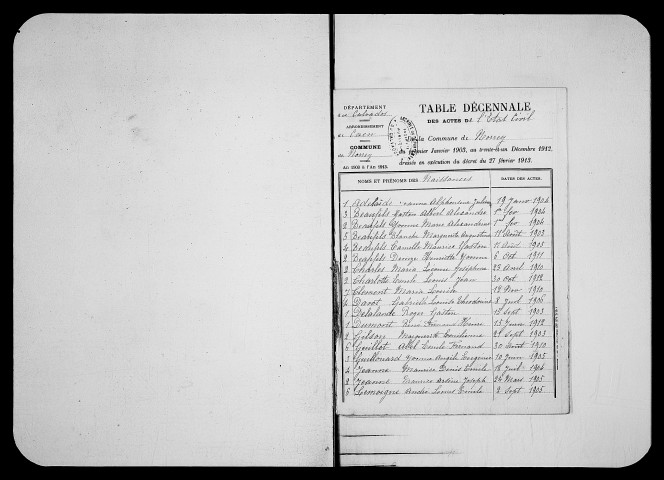 DÉPARTEMENT
du Calvados
ARRONDISSEMENT
de Caen
COMMUNE
de Norrey
An 1903 à l'An 1913.
TABLE DÉCENNALE
DES ACTES DE l'Etat Civil
de la Commune de Norrey
du Premier Janvier 1903, au trente-et-un Décembre 1912,
dressée en exécution du décret du 27 février 1913.
NOMS ET PRÉNOMS DES Naissances
DATES DES ACTES.
1 Adelaïde Jeanne Alphonsine 19 Janv 1904
3 Beaufils Gaston Albert Alexandre 1er fev 1904
2 Beaufils Yvonne Marie Alexandrine 1er fev 1904
5 Beaufils Blanche Marguerite Augustine 11 Août 1903
4 Beaufils Camille Maurice Gaston 11 Août 1905
2 Beaufils Denise Henriette Yvonne 6 Oct 1911
2 Charles Maria Léonie Joséphine 23 Avril 1910
2 Charlotte Emile Louis Jean 30 Oct 1912
7 Clément Maria Louise 12 Nov 1910
Davot Gabrielle Louise Théodorine 8 Juil 1906
1 Delalande Roger Gaston 12 Sept 1903
1 Dumont René Henri 15 Juin 1912
Gelson Marguerite Emilienne 21 Sept 1903
6 Guillot Abel Emile Fernand 30 Août 1910
3 Guillouard Yvonne Angèle Eugénie 10 Juin 1905
4 Jeanne Maurice Denis Emile 18 Juil 1904
2 Jeanne Maurice Arsène Joseph 24 Mars 1905
6 Lemoigne André Louis Emile 2 Sept 1905